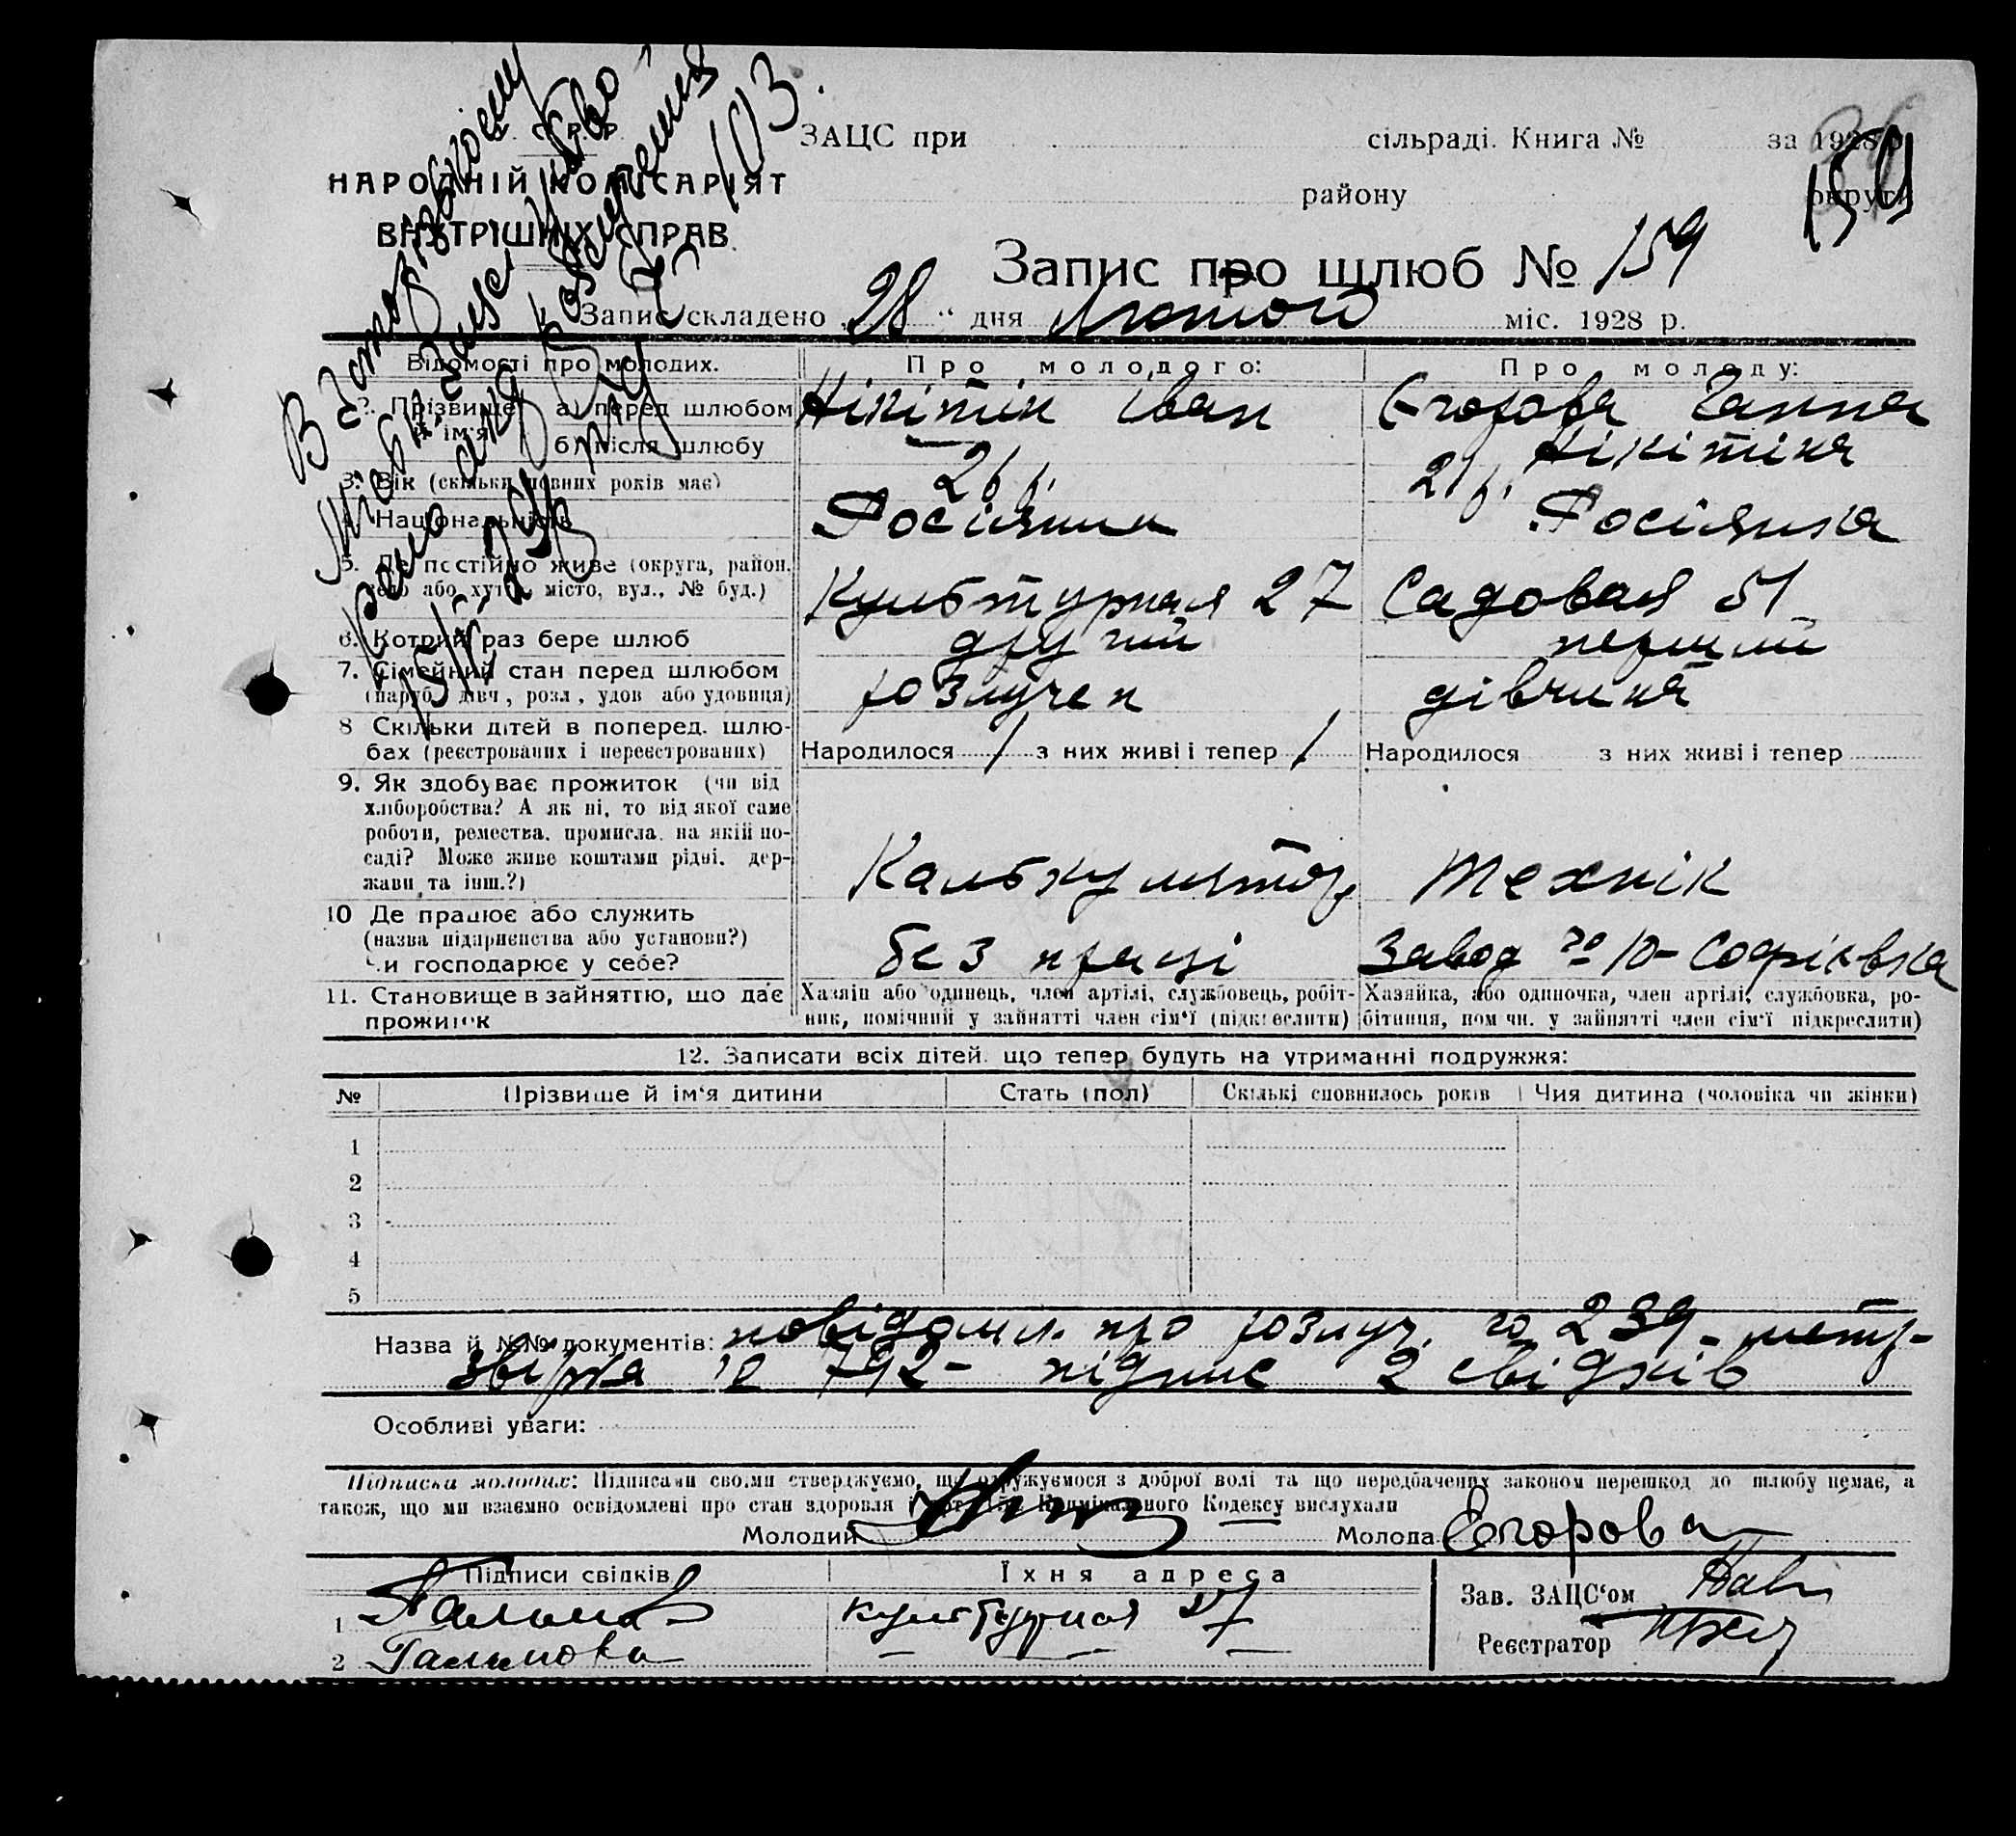 У. С. Р. Р.
НАРОДНІЙ КОМІСАРІЯТ
ВНУТРІШНІХ СПРАВ
ЗАЦС при сільраді. Книга № за 1928 р.
району округи
159
Запис про шлюб № 159
Запис складено „28“ дня Лютого міс. 1928 р.
Відомості про молодих. Про молодого: Про молоду:
2. Прізвище й ім'я а) перед шлюбом Нікітін Іван Єгорова Ганна
б) після шлюбу Нікітіна
3. Вік (скільки повних років має) 26 р. 21 р.
4. Національність Росіянин Росіянка
5. Де постійно живе (округа, район,
село або хутір, місто, вул., № буд.) Культурная 27 Садовая 51
6. Котрий раз бере шлюб другий перший
7. Сімейний стан перед шлюбом
(паруб., дівч., розл., удов. або удовиця) розлучен дівчина
8 Скільки дітей в поперед. шлю-
бах (реєстрованих і нереєстрованих) Народилося 1 з них живі і тепер 1 Народилося з них живі і тепер
9. Як здобуває прожиток (чи від
хліборобства? А як ні, то від якої саме
роботи, ремества, промисла, на якій по-
саді? Може живе коштами рідні, дер-
жави та інш.?) Калькулятор Технік
10 Де працює або служить
(назва підприємства або установи?)
Чи господарює у себе? без праці Завод № 10- Софіївка
11. Становище в зайняттю, що дає
прожиток
Хазяїн або одинець, член артілі, службовець, робіт-
ник, помічний у зайнятті член сім'ї (підкреслити)
Хазяйка, або одиночка, член артілі, службовка, ро-
бітниця, пом чн. у зайнятті член сім'ї підкреслити)
12. Записати всіх дітей, що тепер будуть на утриманні подружжя:
№ Прізвище й ім'я дитини Стать (пол) Скількі сповнилось років Чия дитина (чоловіка чи жінки)
1
2
3
4
5
Назва й №№ документів: повідомл. про розлуч. № 239- метр-
№ 792- підпис 2 свідків
Особливі уваги:
Підписка молодих: Підписами своїми стверджуємо, що одружуємося з доброї волі та що передбачених законом перешкод до шлюбу немає, а
також, що ми взаємно освідомлені про стан здоров'я Кримінального Кодексу вислухали
Молодий Молода Єгорова
Підписи свідків Їхня адреса
1 Культурная 27
2 Галимова — — —
Зав. ЗАЦС'ом
Реєстратор